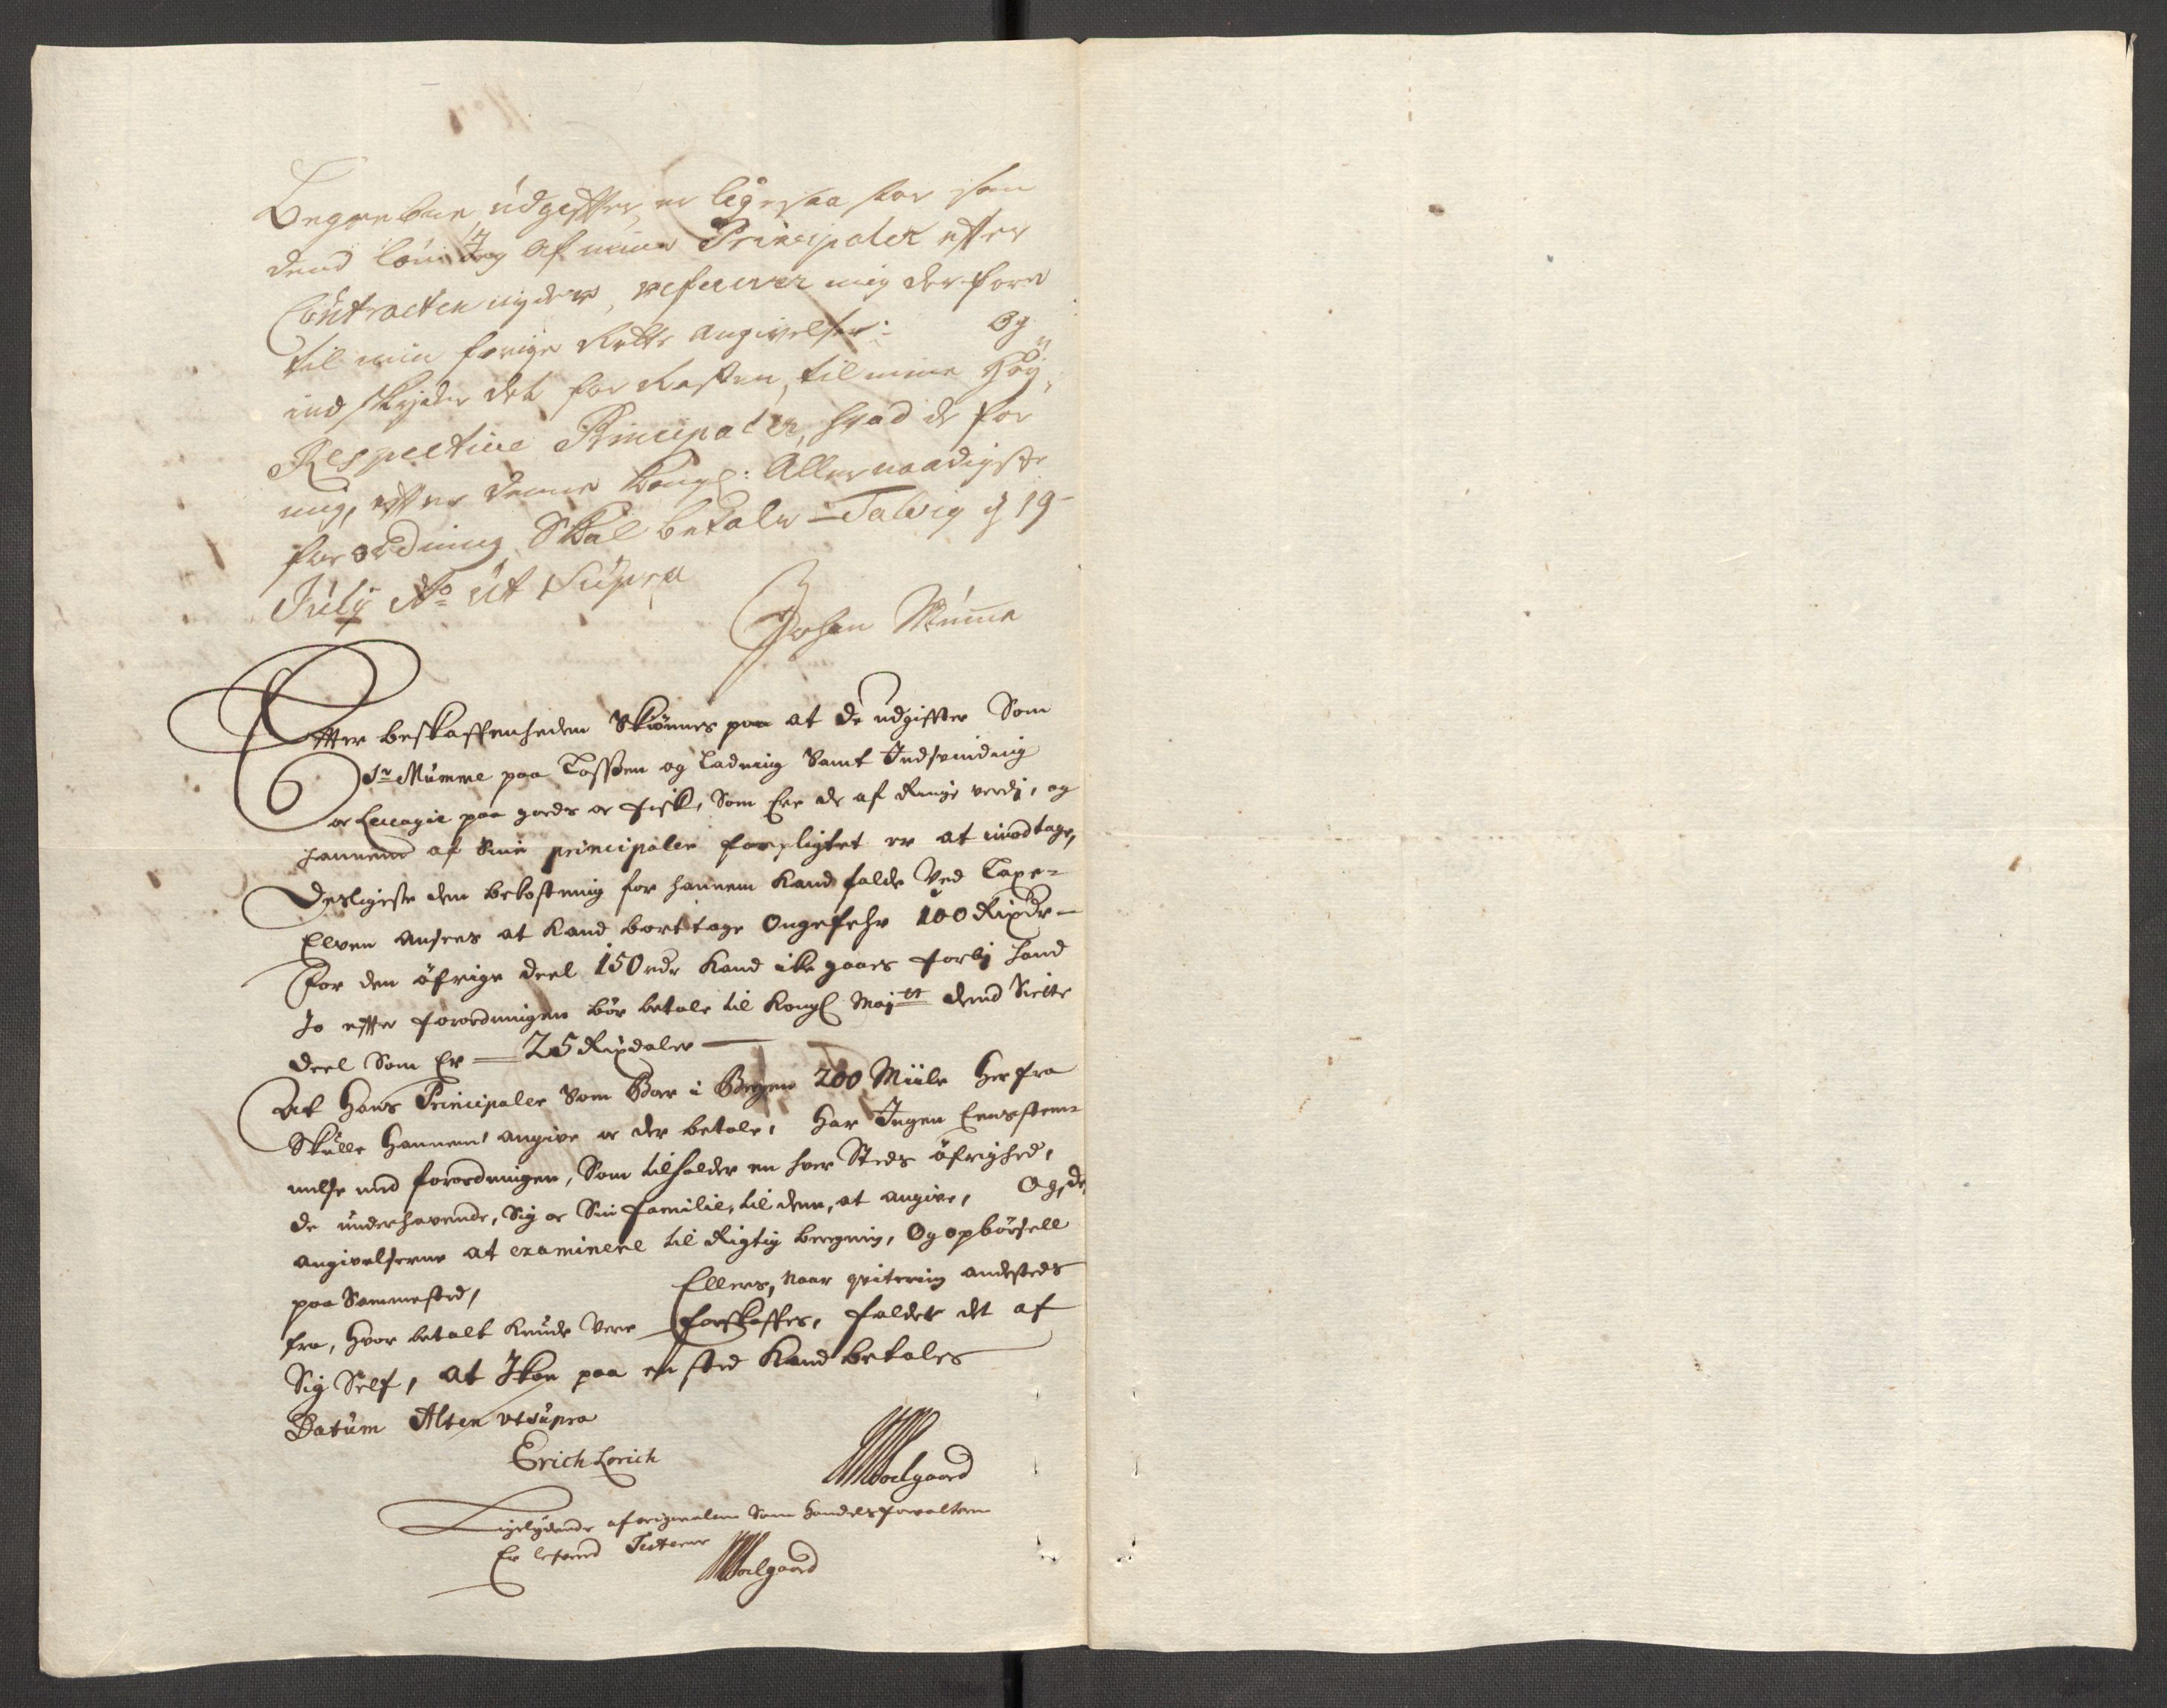 udgiffter, er ligesaa for som
dend lön Jeg af mine Principaler effter
Contracten nyder, refererer mig derfore
til min forige Rette angivelser: Og
ind skyder det for Resten, til mine Höy,,
Respective Principaler, hvad de for
mig, effter denne Kongl: Allernaadigste
forordning Skal betale - Talvig d 19
July Ao ut Supra
Johan Mumme
Effter beskaffenheden Skiönnes paa at de udgiffter Som
Sr Mumme paa Lossen og Ladning Samt Indsvinding
oc Leccagie paa goeds oc fisk, Som Ere de af Ringe verdj, og
hannem af Sine principaler forpligtet er at imodtage,
Desligeste den bekostning for hannem kand falde Ved Taxe-
Elven ansees at kand borttage Ongefehr 100 Rixdr -
For den öfrige deel 150 rdr kand ike gaaes forbj hand
Jo effter forordningen bör betale til Kongl Majtt dend Siette
deel Som Er - 25 Rixdaler -
At Hans Principaler Som Boer i Bergen 200 Miile Her fra
Skulle Hannem angive oc der betale, Har Ingen Eensstem-
melse med forordningen, Som tilholder en hver Steds öfrighed,
de underhavende, Sig oc Sin familie, til dem, at angive, Og de
angivelserne at examinere til Rigtig beregning, Og opbörsell
paa Sammested, Ellers, naar qvitering andesteds
fra, hvor betalt kunde Vere forskaffes, falder det af
Sig Self, at Ikon paa en sted kand betales
Datum Alten ut supra
Erich Lorich
Woelgaard
Ligelydende af originalen Som Handelsforvalteren
Er lefvered Testerer
Woelgaard